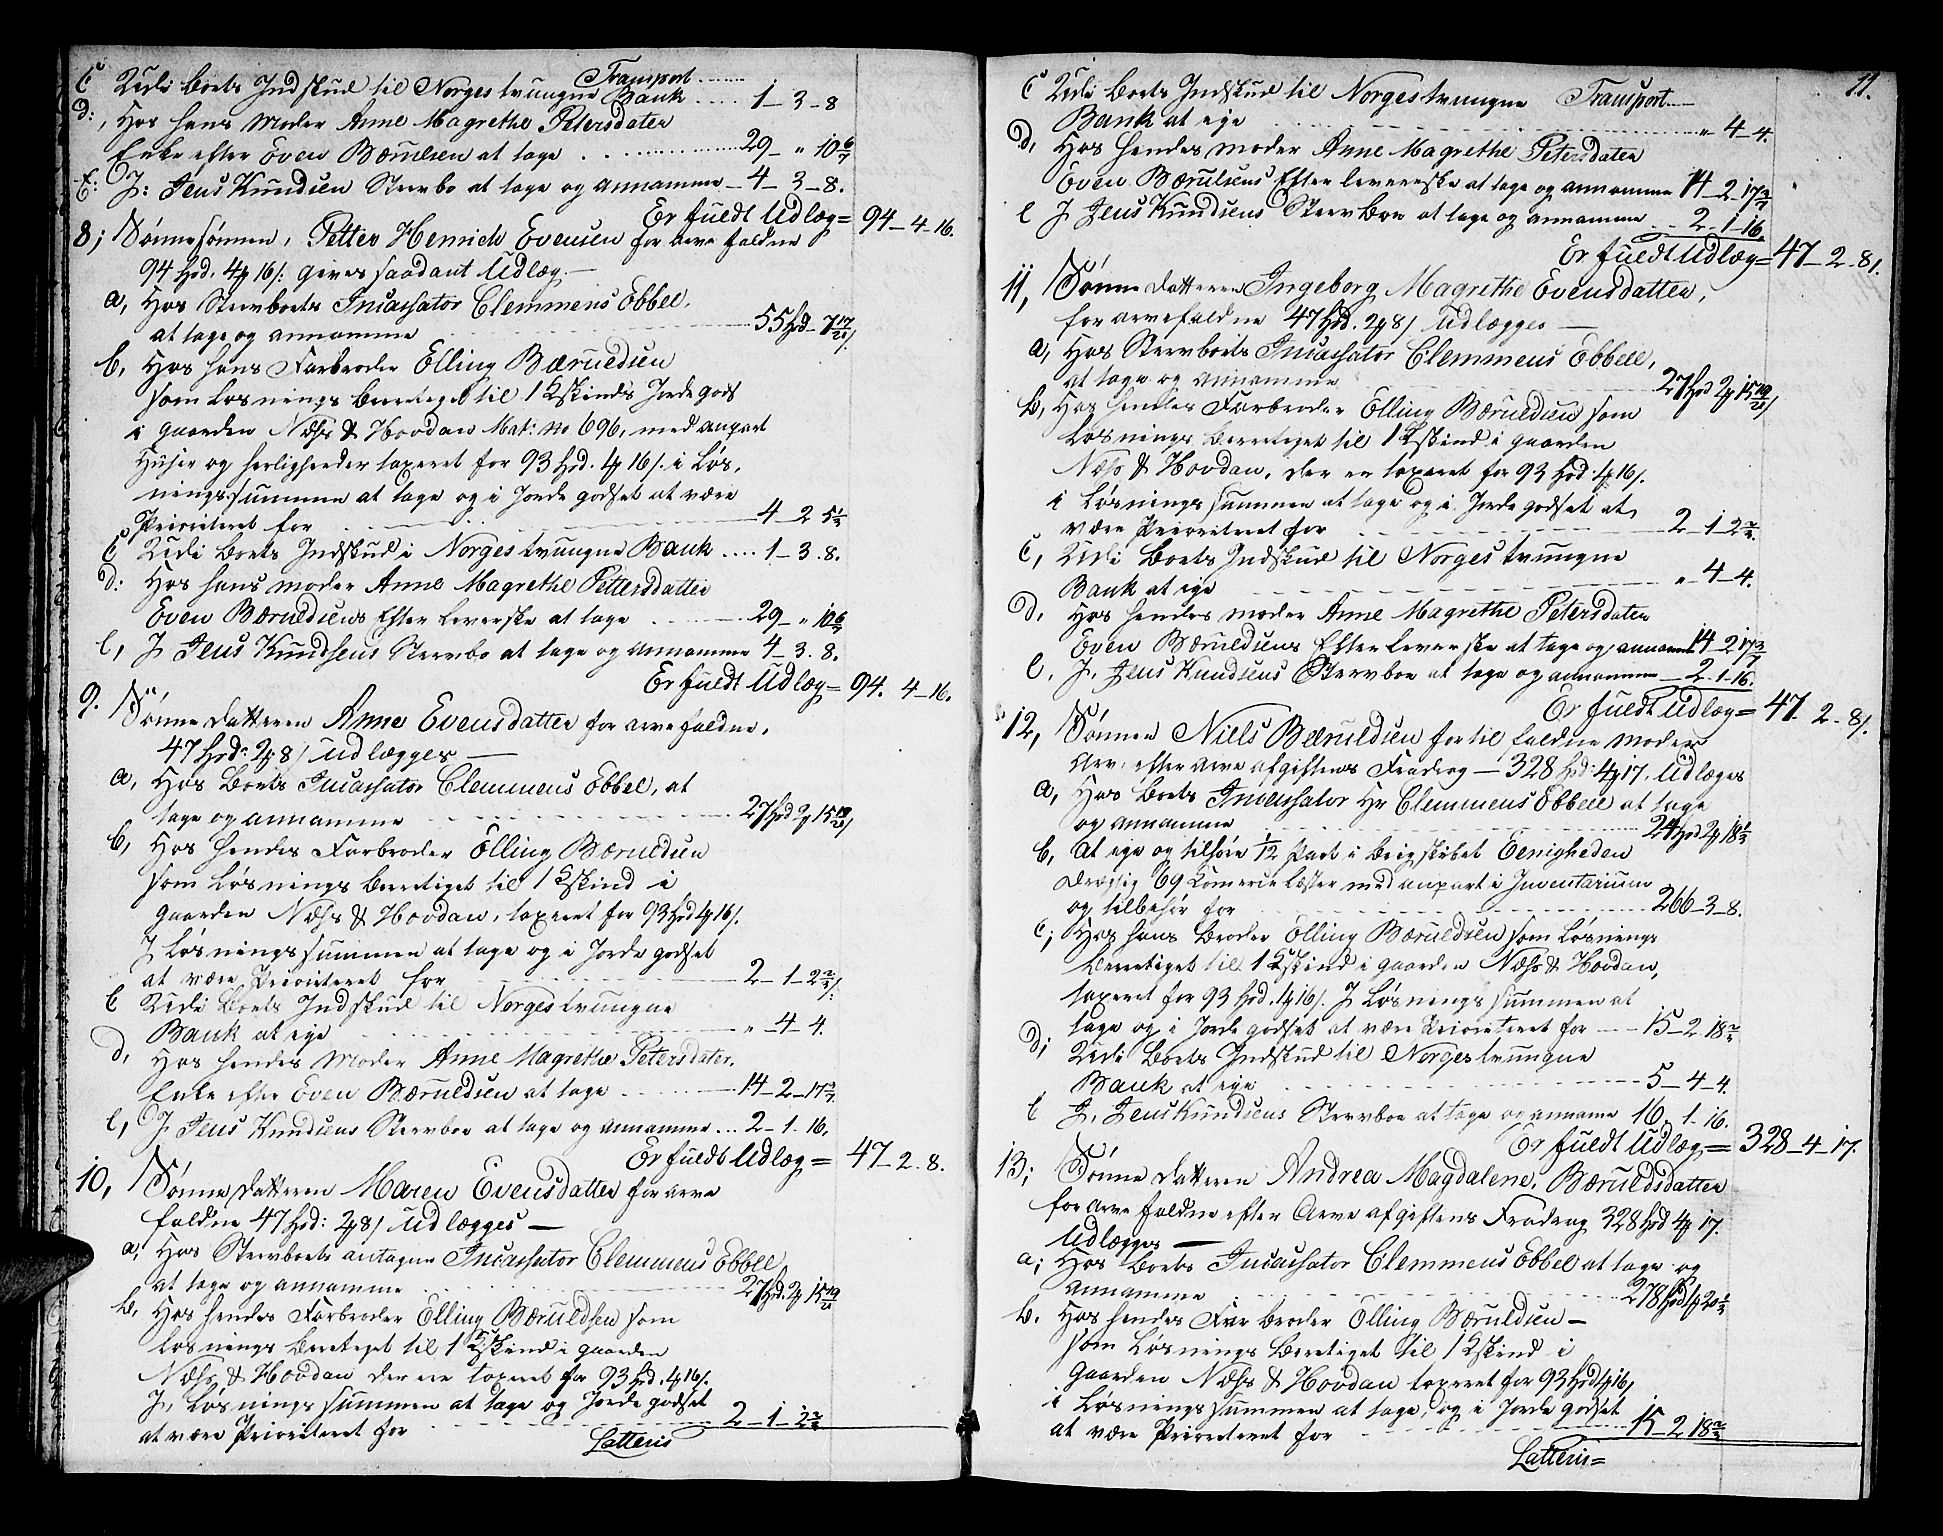 Transport
C Udi Boets Indskud til Norges tvungne Bank 1–3–8
D: Hos hans Moder Anne Magrethe Petersdater
Enke efter Even Bæruldsen at tage 29– " 10 6/7
E: I Jens Knudsen Stervbo at tage og annamme – 4–3–8.
Er fuldt Udlæg = 94–4–16.
8; Sønnesønnen, Petter Henrich Evensen for arve faldne
94 Hrd. 4 16 /. gives saadant Udlæg. —
a, Hos Stervboets Incassator Clemmens Ebbel,
at tage og annamme 55 Hrd – 7 17/21 /.
b, Hos hans Farbroder Elling Bæruldsen
som Løsnings berettiget til 1 Kskinds Jorde gods
i gaarden Næss & Hovdan Mat: No 696, med anpart
Huser og herligheder taxeret for 93 Hrd. 4 16 /. i Løs,
nings summen at tage og i Jorde godset at være
Prioriteret for 4–2 5 1/2
C Udi Boets Indskud i Norges tvungne Bank .... 1–3–8.
D: Hos hans moder Anne Magrethe Pettersdatter
Even Bæruldsens Efter leverske at tage 29– " 10 6/7
e, I Jens Knudsens Stervbo at tage og annamme 4–3–8.
Er fuldt Udlæg = 94. 4–16.
9. Sønne datteren Anne Evensdatter for arve faldne,
47 Hrd: 2 8 / Udlægges —
a, Hos Boets Incassator Clemmens Ebbel, at
tage og annamme 27 Hrd 2 15 19/21 /
b, Hos hendes Farbroder Elling Bæruldsen
som Løsnings berettiget til 1 Kskind i
gaarden Næss & Hovdan, taxeret for 93 Hrd 4 16 /.
I Løsnings summen at tage og i Jorde godset
at være Prioriteret for 2–1–2 2/4 /.
C Udi Boets Indskud til Norges tvungne
Bank at eye " –4–4.
d, Hos hendes Moder Anne Magrethe Petersdater.
Enke efter Even Bæruldsen at tage 14–2–17 3/7
e, I Jens Knudsens Stervboe at tage og annamme ... 2–1–16.
Er fuldt Udlæg = 47–2–8.
10, Sønne Datteren Maren Evensdatter for arve
faldne 47 Hrd: 2 8 / Udlægges —
a, Hos Stervboets antagne Incassator Clemmens Ebbel
at tage og annamme 27 Hrd. 2 15 19/21
b, Hos hendes Farbroder Elling Bæruldsen som
Løsnings berettiget til 1 Kskind i gaarden
Næss & Hovdan der ere taxeret for 93 Hrd. 4 16 /.
I, Løsnings summen at tage og Jorde godset
at være Prioriteret for 2–1–2 2/4
Latteris
11.
Transport
C Udi Boets Indskud til Norges tvungne
Bank at eye " 4–4.
d, Hos hendes Moder Anne Magrethe Petersdater
Even Bæruldsens Efter leverske at tage og annamme 14–2–17 3/7
e I Jens Knudsens Stervboe at tage og annamme 2–1–16.
Er fuldt Udlæg = 47–2–8 /.
11, Sønne datteren Ingeborg Magrethe Evensdatter,
for arvefaldne 47 Hrd. 2 8 / Udlægges —
a, Hos Stervboets Incassator Clemmens Ebbel,
at tage og annamme 27 Hrd 2 15 19/21 /
b, Hos hendes Farbroder Elling Bæruldsen som
Løsnings berettiget til 1 Kskind i gaarden
Næss & Hovdan, der er taxeret for 93 Hrd 4 16 /.
i Løsnings summen at tage og i Jorde godset at,
være Prioriteret for 2–1–2 2/4.
C, Udi Boets Indskud til Norges tvungne
Bank at eye " 4–4.
d, Hos hendes moder Anne Magrethe Petersdaten
Even Bæruldsens Efter leverske at tage og annamme 14–2–17 3/7
e. I, Jens Knudsens Stervboe at tage og annamme – 2–1–16.
Er fuldt Udlæg = 47. 2–8 /.
12, Sønnen Niels Bæruldsen for til faldne moder
Arv, efter arve afgiftens Fradrag – 328 Hrd: 4 17. Udlæges
a, Hos Boets Incassator Hr Clemmens Ebbel at tage
og annamme 24 Hrd 2 18 1/2
b, At eye og tilhøre 1/12 Part i Brigskibet Eenigheden
drægtig 69 Komerce læster med anpart i Inventarium
og tilbehør for 266–3–8.
C; Hos hans Broder Elling Bæruldsen som Løsnings
berettiget til 1 Kskind i gaarden Næss & Hovdan,
taxeret for 93 Hrd. 4 16 /. I Løsnings summen at
tage og i Jorde godset at være Prioriteret for — 15–2 18 2/4
d; Udi Boets Indskud til Norges tvungne
Bank, at eye 5–4–4.
e I, Jens Knudsens Stervboe at tage og anname 16. 1–16.
Er fuldt Udlæg = 328–4–17.
13; Sønne datteren Andrea Magdalene, Bæruldsdatter
for arve faldne efter Arve afgiftens Fradrag 328 Hrd 4 17.
Udlægges —
a; Hos Boets Incassator Clemmens Ebbel at tage og
annamme 278 Hrd 4 20 1/2
b. Hos hendes Far broder Elling Bæruldsen –
som Løsnings berettiget til 1 Kskind i
gaarden Næss & Hovdan taxeret for 93 Hrd 4 16,
i Løsnings summen at tage, og i Jorde godset
at være Prioriteret for 15–2 18 2/4
Latteris =